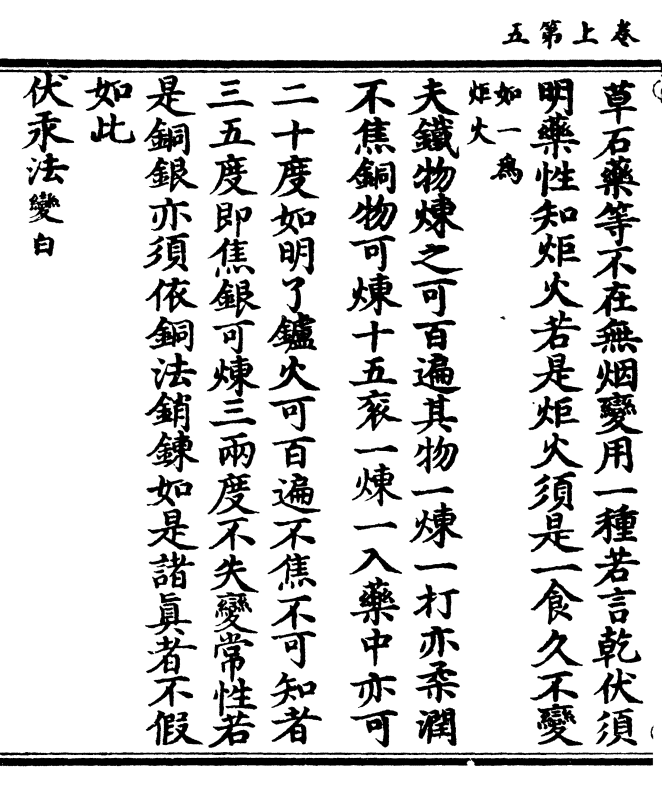 卷上第五
草石藥等不在無烟變用一種若言乾伏須
明藥性知炬火若是炬火須是一食久不變
如一爲
炬火
夫鐵物煉之可百遍其物一煉一打亦柔潤
不焦銅物可煉十五衮一煉一入藥中亦可
二十度如明了鑪火可百遍不焦不可知者
三五度即焦銀可煉三兩度不失變常性若
是銅銀亦須依銅法銷鍊如是諸眞者不假
如此
伏汞法變白